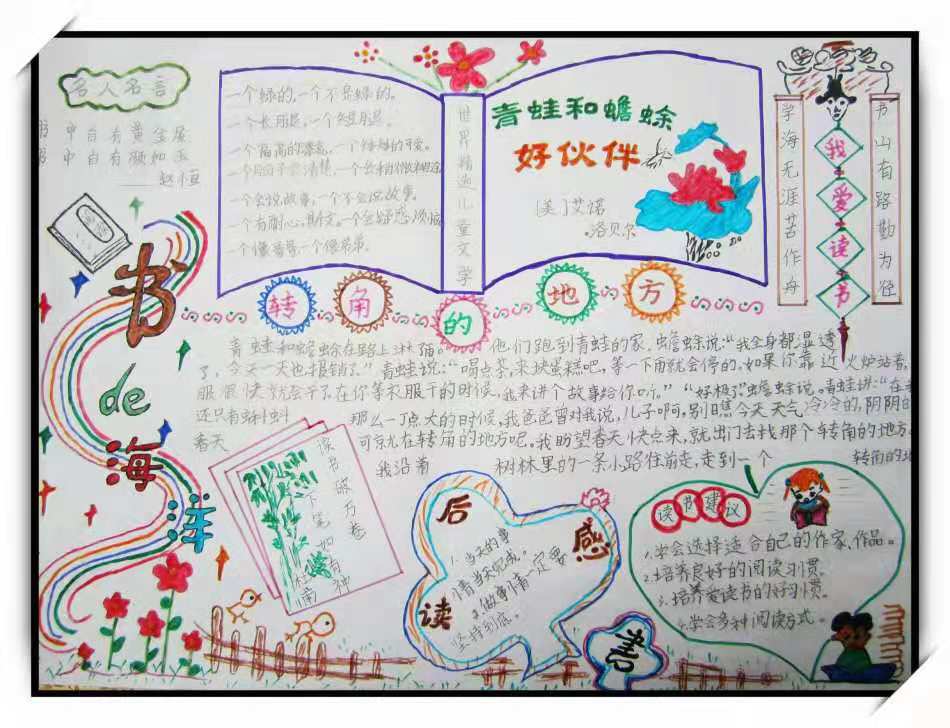 名人名言
书中自有黄金屋
书中自有颜如玉
——赵恒
一个绿的,一个不是绿的。
一个长用思,一个短用思。
一个会说故事,一个不会说故事。
一个像哥哥,一个像弟弟。
世界精选儿童文学
青蛙和蟾蜍
好伙伴
[美]艾诺
洛贝尔
学海无涯苦作舟
我爱读书
书山有路勤为径
书de海洋
转角的地方
青蛙和蟾蜍在路上淋雨。 他们跑到青蛙的家,蟾蜍说:“我全身都湿透
了,今天一天也报销了。”青蛙说:“喝点茶,来块蛋糕吧,等一下雨就会停的。如果你靠近火炉站着,
服很快就会干了。在你等衣服干的时候,我来讲个故事给你听。”“好极了”蟾蜍说。青蛙讲:“在
还只有蝌蚪 那么一丁点大的时候,我爸爸曾对我说,儿子啊,别看今天天气冷冷的,阴阴的
春天 可就在转角的地方呢。我盼望春天快点来,就出门去找那个转角的地方。
我沿着 树林里的一条小路往前走,走到一个 转角的地
读书破万卷
下笔如有神
杜甫
读后感
1.当天的事
情当天完成。
2.做事情一定要
坚持到底。
读书建议
1.学会选择适合自己的作家、作品。
2.培养良好的阅读习惯。
3.培养爱读书的好习惯。
4.学会多种阅读方式。